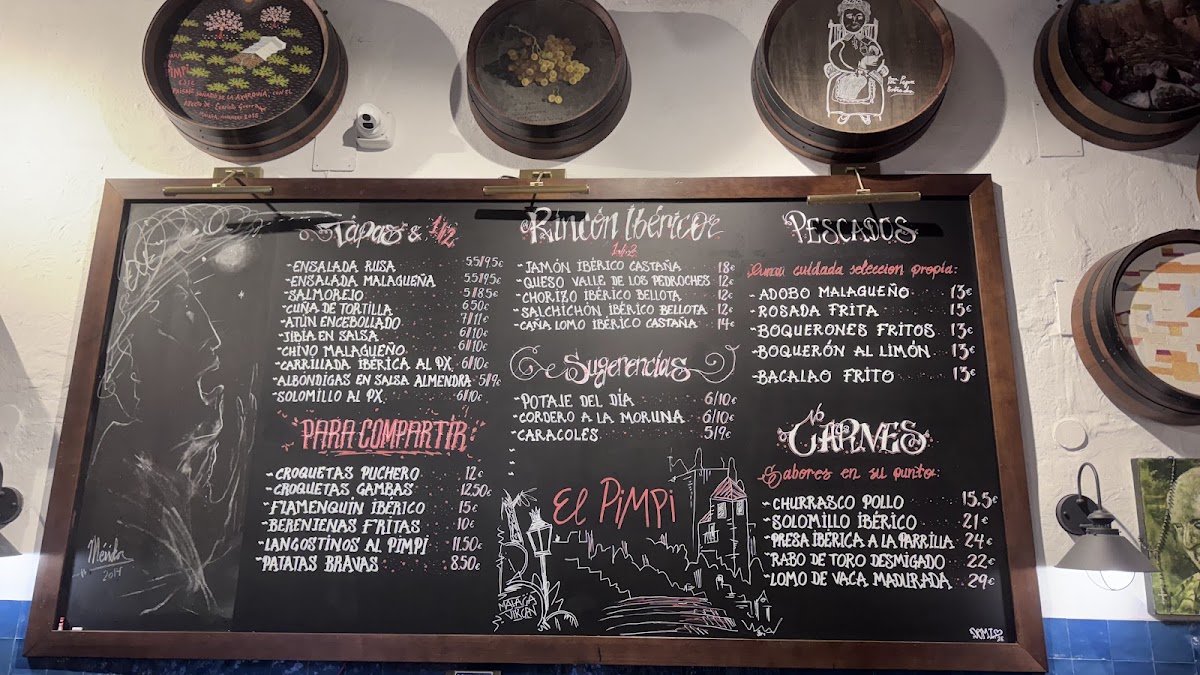 PIMPI
ESTE
PAISAJE SOÑADO DE LA AXARQUÍA, CON EL
Tapas & 1/2
-ENSALADA RUSA 5.5//9.5€
-ENSALADA MALAGUEÑA 5.5//9.5€
-SALMOREJO 5//8.5€
-CUÑA DE TORTILLA 6.50€
-ATÚN ENCEBOLLADO 7//11€
-JIBIA EN SALSA 6//10€
-CHIVO MALAGUEÑO 6//10€
-CARRILLADA IBÉRICA AL PX 6//10€
-ALBÓNDIGAS EN SALSA ALMENDRA 5//9€
-SOLOMILLO AL PX 6//10€
PARA COMPARTIR
-CROQUETAS PUCHERO 12€
-CROQUETAS GAMBAS 12,50€
-FLAMENQUÍN IBÉRICO 15€
-BERENJENAS FRITAS 10€
-LANGOSTINOS AL PIMPI 11.50€
-PATATAS BRAVAS 8.50€
Méridor
2017
Rincón Ibérico
-JAMÓN IBÉRICO CASTAÑA 18€
-QUESO VALLE DE LOS PEDROCHES 12€
-CHORIZO IBÉRICO BELLOTA 12€
-SALCHICHÓN IBÉRICO BELLOTA 12€
-CAÑA LOMO IBÉRICO CASTAÑA 14€
Sugerencias
-POTAJE DEL DÍA 6/10€
-CORDERO A LA MORUNA 6/10€
-CARACOLES 5/9€
EL PiMPi
MALAGA
VIRGEN
PESCADOS
cuidada selección propia:
-ADOBO MALAGUEÑO 13€
-ROSADA FRITA 15€
-BOQUERONES FRITOS 13€
-BOQUERÓN AL LIMÓN 13€
-BACALAO FRITO 13€
CARNES
Sabores en su punto:
-CHURRASCO POLLO 15.5€
-SOLOMILLO IBÉRICO 21€
-PRESA IBÉRICA A LA PARRILLA 24€
-RABO DE TORO DESMIGADO 22€
-LOMO DE VACA MADURADA 29€